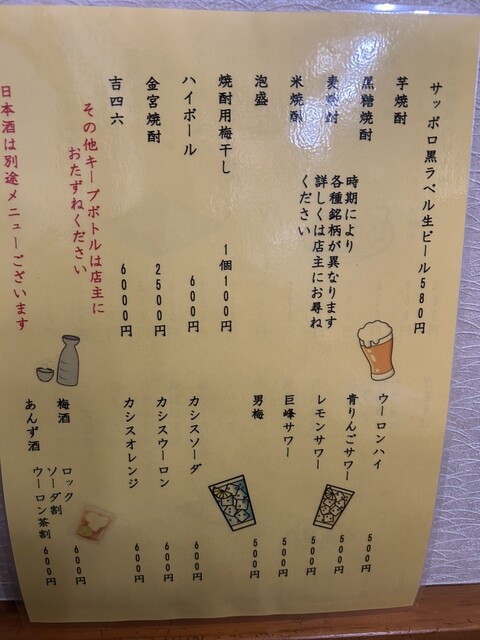 サッポロ黒ラベル生ビール580円
芋焼酎
黒糖焼酎
麦焼酎
米焼酎
泡盛
時期により
各種銘柄が異なります
詳しくは店主にお尋ね
ください
焼酎用梅干し 1個100円
ハイボール 600円
金宮焼酎 2500円
吉四六 6000円
その他キープボトルは店主に
おたずねください
日本酒は別途メニューございます
ウーロンハイ 500円
青りんごサワー 500円
レモンサワー 500円
巨峰サワー 500円
男梅 500円
カシスソーダ 600円
カシスウーロン 600円
カシスオレンジ 600円
梅酒
あんず酒
ロック 600円
ソーダ割
ウーロン茶割 600円